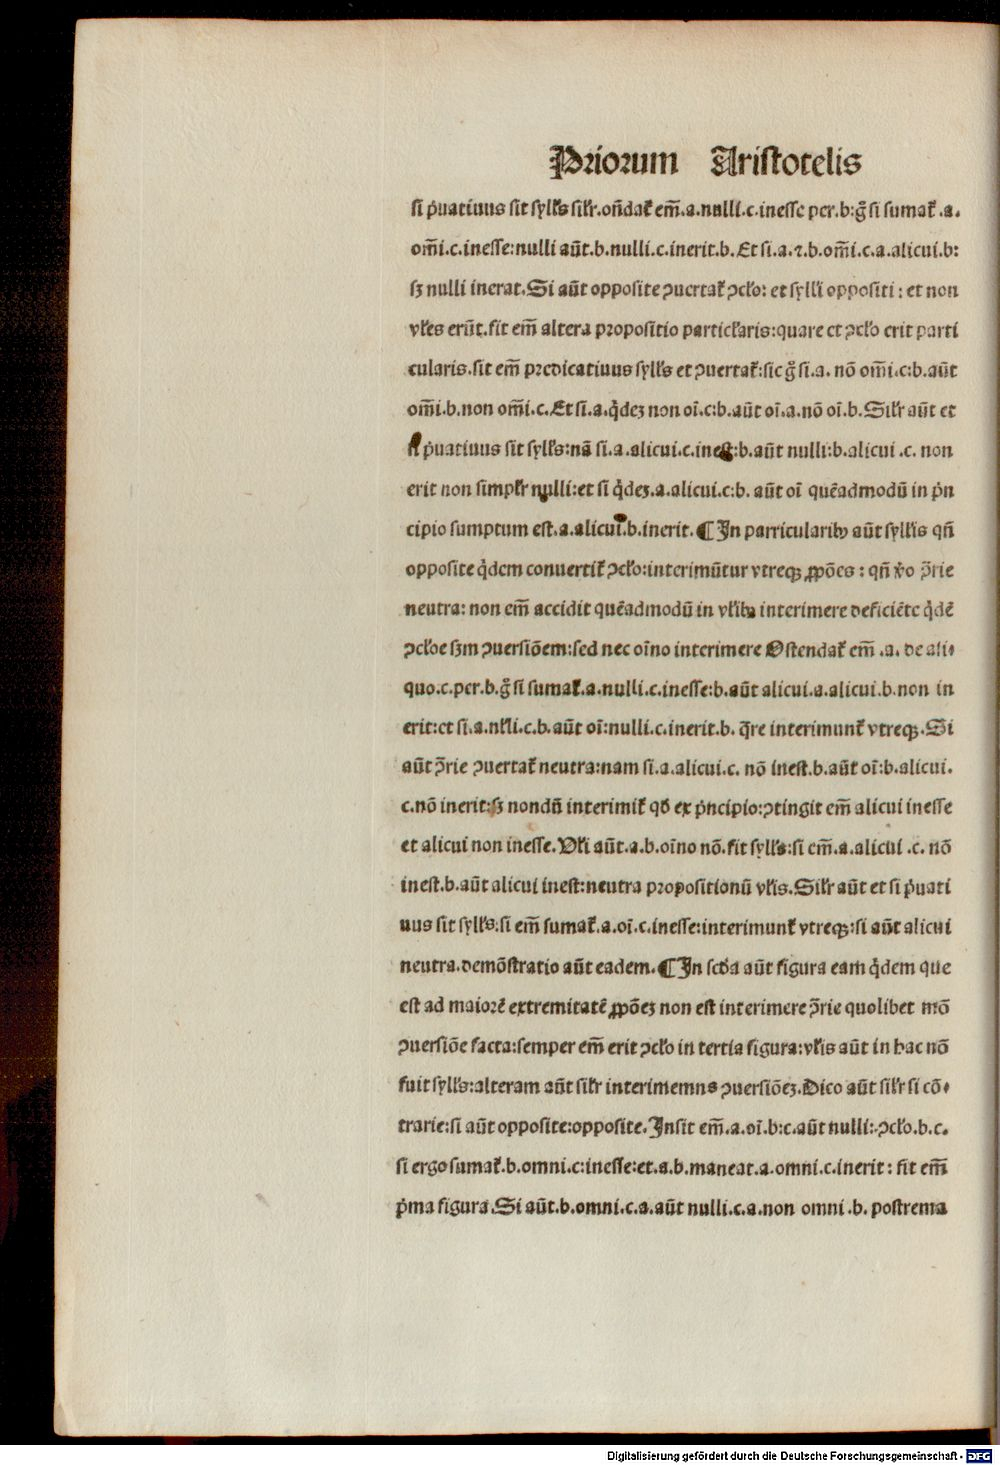 Priorum Aristotelis
si p̓uatiuus sit syłłs silr̄.ondat᷑ em̅.a.nulli.c.inesse per.b:g̊ si sumat᷑ .a.
om̅i.c.inesse:nulli aūt.b.nulli.c.inerit.b.Et si.a.⁊.b.om̅i.c.a.alicui.b:
sꝫ nulli inerat.Si aūt opposite ꝯuertat᷑ ꝯcło: et syłłi oppositi: et non
vłes erūt.fit em̅ altera propositio particłaris:quare et ꝯcło erit parti
cularis.sit em̅ predicatiuus syłłs et ꝯuertat᷑:sic g̊ si.a. nō om̅i.c:b.aūt
om̅i.b.non om̅i.c.Et si.a.q̓deꝫ non oī.c:b.aūt oī.a.nō oī.b.Silr̄ aūt et
si p̓uatiuus sit syłłs:nā si.a.alicui.c.inest:b.aūt nulli:b.alicui .c. non
erit non simplr̄ nulli:et si q̓deꝫ.a.alicui.c:b. aūt oī quēadmodū in p̓n
cipio sumptum est.a.alicui.b.inerit.¶ In particularibꝫ aūt syłłis qn̄
opposite q̓dem conuertit᷑ ꝯcło:interimūtur vtreqꝫ ꝓpōes : qn̄ v̊o ꝯ̄rie
neutra: non em̅ accidit quēadmodū in vłibꝫ interimere deficiēte q̓dē
ꝯcłoe sꝫm ꝯuersiōem:sed nec oīno interimere Ostendat᷑ em̅ .a. de ali⸗
quo.c.per.b.g̊ si sumat᷑.a.nulli.c.inesse:b.aūt alicui.a.alicui.b.non in
erit:et si.a.nłłi.c.b.aūt oī:nulli.c.inerit.b. q̄re interimunt᷑ vtreqꝫ.Si
aūt ꝯ̄rie ꝯuertat᷑ neutra:nam si.a.alicui.c. nō inest.b.aūt oī:b.alicui.
c.nō inerit:sꝫ nondū interimit᷑ qđ ex p̓ncipio:ꝯtingit em̅ alicui inesse
et alicui non inesse.Vłi aūt.a.b.oīno nō.fit syłłs:si em̅.a.alicui .c. nō
inest.b.aūt alicui inest:neutra propositionū vłis.Silr̄ aūt et si p̓uati
uus sit syłłs:si em̅ sumat᷑.a.oī.c.inesse:interimunt᷑ vtreqꝫ:si aūt alicui
neutra.demōstratio aūt eadem.¶ In scđa aūt figura eam q̓dem que
est ad maiorē extremitatē ꝓpōeꝫ non est interimere ꝯ̄rie quolibet mō
ꝯuersiōe facta:semper em̅ erit ꝯcło in tertia figura:vłis aūt in hac nō
fuit syłłs:alteram aūt silr̄ interimemns ꝯuersiōeꝫ.Dico aūt silr̄ si cō⸗
trarie:si aūt opposite:opposite.Insit em̅.a.oī.b:c.aūt nulli:ꝯcło.b.c.
si ergo sumat᷑.b.omni.c:inesse:et.a.b.maneat.a.omni.c.inerit: fit em̅
p̓ma figura.Si aūt.b.omni.c.a.aūt nulli.c.a.non omni .b. postrema
Digitalisierung gefördert durch die Deutsche Forschungsgemeinschaft - DFG